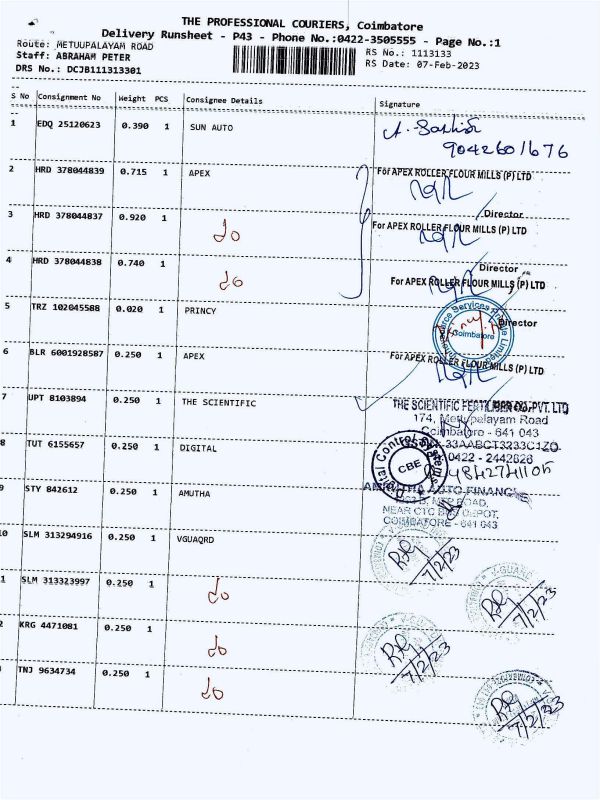 THE PROFESSIONAL COURIERS, Coimbatore
Delivery Runsheet - P43 - Phone No.:0422-3505555 - Page No.:1
Route: METUUPALAYAM ROAD
Staff: ABRAHAM PETER
DRS No.: DCJB111313301
RS No.: 1113133
RS Date: 07-Feb-2023
S No Consignment No Weight PCS Consignee Details Signature
1 EDQ 25120623 0.390 1 SUN AUTO
9042601676
2 HRD 378044839 0.715 1 APEX For APEX ROLLER FLOUR MILLS (P) LTD
Director
3 HRD 378044837 0.920 1 do For APEX ROLLER FLOUR MILLS (P) LTD
Director
4 HRD 378044838 0.740 1 do For APEX ROLLER FLOUR MILLS (P) LTD
Director
5 TRZ 102045588 0.020 1 PRINCY
Services Private Limited
Coimbatore
6 BLR 6001928587 0.250 1 APEX For APEX ROLLER FLOUR MILLS (P) LTD
7 UPT 8103894 0.250 1 THE SCIENTIFIC THE SCIENTIFIC PVT. LTD
174, Mettupalayam Road
Coimbatore - 641 043
33AABCT3233C1ZO
0422 - 2442626
8 TUT 6155657 0.250 1 DIGITAL
Digital Control Systems
CBE
9 STY 842612 0.250 1 AMUTHA AMUTHA AUTO FINANCE
ROAD,
NEAR CTC BUS DEPOT,
COIMBATORE - 641 043
10 SLM 313294916 0.250 1 VGUAQRD
7/2/23
1 SLM 313323997 0.250 1 do
7/2/23
2 KRG 4471081 0.250 1 do
7/2/23
TNJ 9634734 0.250 1 do
7/2/23